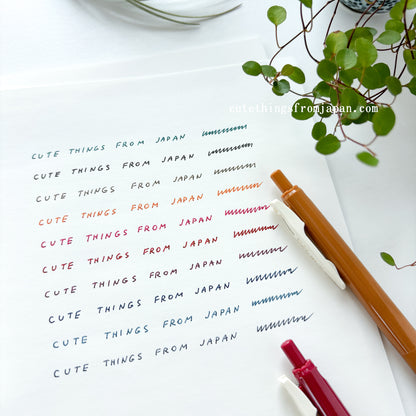 cutethingsfromjapan.com
CUTE THINGS FROM JAPAN
CUTE THINGS FROM JAPAN
CUTE THINGS FROM JAPAN
CUTE THINGS FROM JAPAN
CUTE THINGS FROM JAPAN
CUTE THINGS FROM JAPAN
CUTE THINGS FROM JAPAN
CUTE THINGS FROM JAPAN
CUTE THINGS FROM JAPAN
CUTE THINGS FROM JAPAN